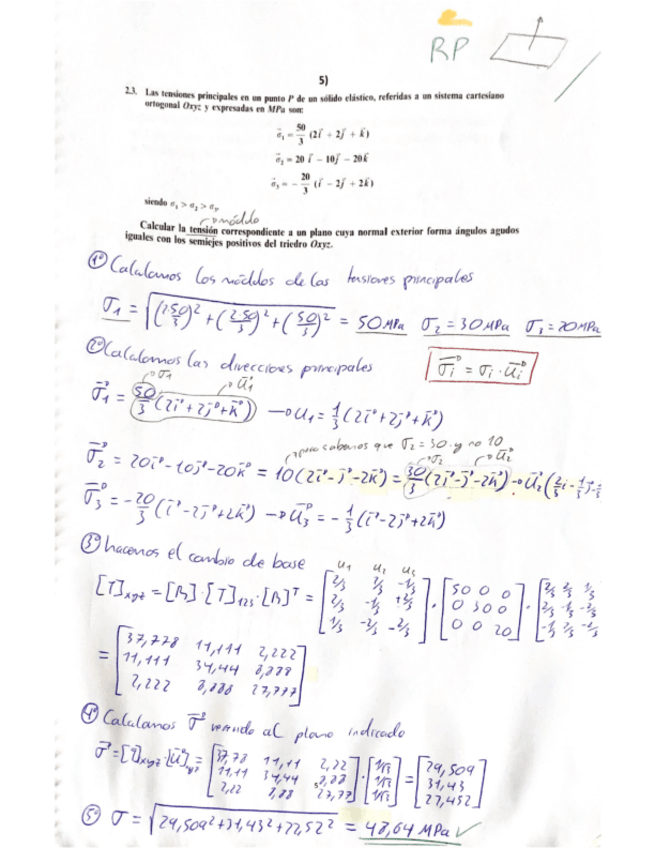 RP
5)
2.3. Las tensiones principales en un punto P de un sólido elástico, referidas a un sistema cartesiano
ortogonal Oxyz y expresadas en MPa son:
σ⃗₁ = 50/3 (2i⃗ + 2j⃗ + k⃗)
σ⃗₂ = 20 i⃗ − 10j⃗ − 20k⃗
σ⃗₃ = − 20/3 (i⃗ − 2j⃗ + 2k⃗)
siendo σ₁ > σ₂ > σ₃.
módulo
Calcular la tensión correspondiente a un plano cuya normal exterior forma ángulos agudos
iguales con los semiejes positivos del triedro Oxyz.
1º Calculamos los módulos de las tensiones principales
σ₁ = √((2·50/3)² + (2·50/3)² + (50/3)²) = 50 MPa σ₂ = 30 MPa σ₃ = 20 MPa
2º Calculamos las direcciones principales
σ⃗ᵢ = σᵢ · u⃗ᵢ
σ₁ u⃗₁
σ⃗₁ = 50/3 (2i⃗ + 2j⃗ + k⃗) → u₁ = 1/3 (2i⃗ + 2j⃗ + k⃗)
pero sabemos que σ₂ = 30 y no 10
σ₂ u⃗₂
σ⃗₂ = 20i⃗ - 10j⃗ - 20k⃗ = 10 (2i⃗ - j⃗ - 2k⃗) = 30/3 (2i⃗ - j⃗ - 2k⃗) → u⃗₂
σ⃗₃ = - 20/3 (i⃗ - 2j⃗ + 2k⃗) → u⃗₃ = - 1/3 (i⃗ - 2j⃗ + 2k⃗)
3º hacemos el cambio de base
u₁ u₂ u₃
[T]xyz = [B] · [T]₁₂₃ · [B]ᵀ = [2/3 2/3 -1/3; 2/3 -1/3 +2/3; 1/3 -2/3 -2/3] · [50 0 0; 0 30 0; 0 0 20] · [2/3 2/3 1/3; 2/3 -1/3 -2/3; -1/3 2/3 -2/3]
= [37,778 11,111 2,222; 11,111 34,44 8,888; 2,222 8,888 27,777]
4º Calculamos σ⃗ al plano indicado
σ⃗ = [T]xyz · [u⃗]xyz = [37,78 11,11 2,22; 11,11 34,44 8,88; 2,22 8,88 27,77] · [1/√3; 1/√3; 1/√3] = [29,509; 31,43; 27,452]
5º σ = √(29,509² + 31,43² + 22,52²) = 48,64 MPa ✓